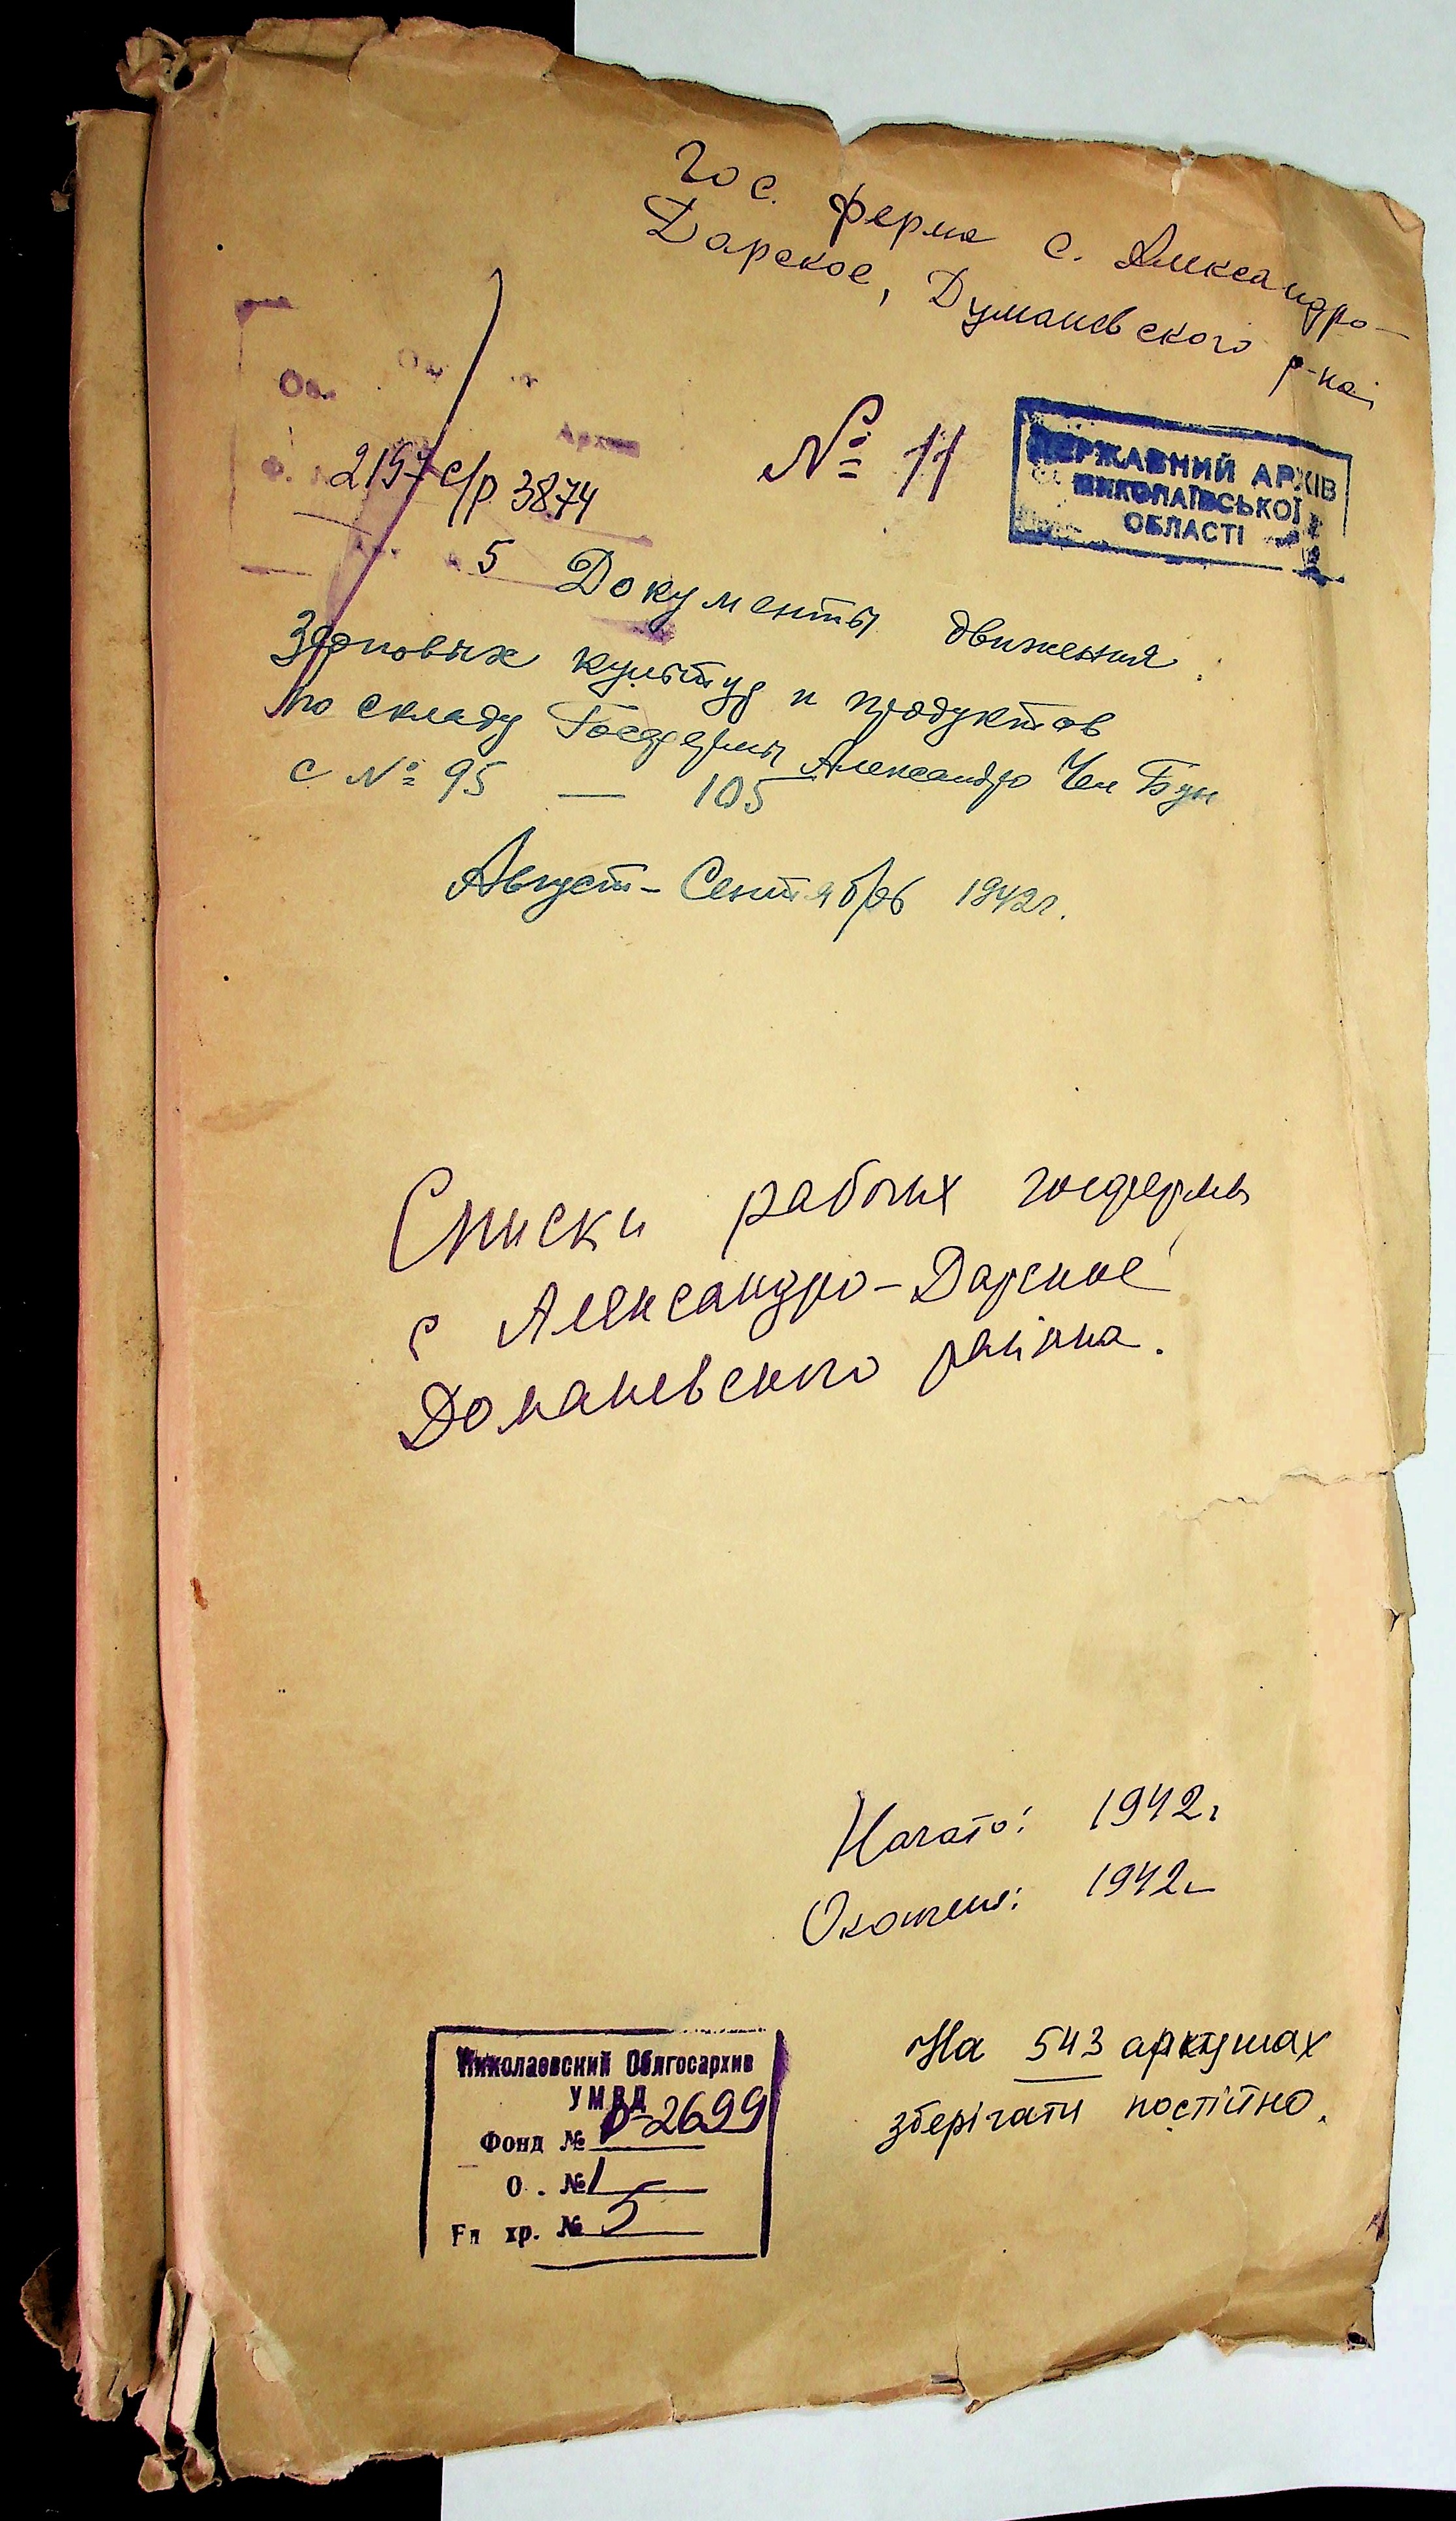 Гос. ферма с. Александро-
Дарское, Думаневского р-на
№ 11
ДЕРЖАВНИЙ АРХІВ
МИКОЛАЇВСЬКОЇ
ОБЛАСТІ
Архив
2197 с/р 3874
5
Документы движения
Зерновых культур и продуктов
по складу Госфермы Александро
с № 95 — 105
Август - Сентябрь 1942г.
Списки рабочих госфермы
с Александро-Дарское
Доманевского района.
Начато: 1942г
Окончено: 1942г
На 543 аркушах
зберігати постійно.
Николаевский Облгосархив
УМВД
Фонд № Р-2699
О . № 1
Ед хр. № 5